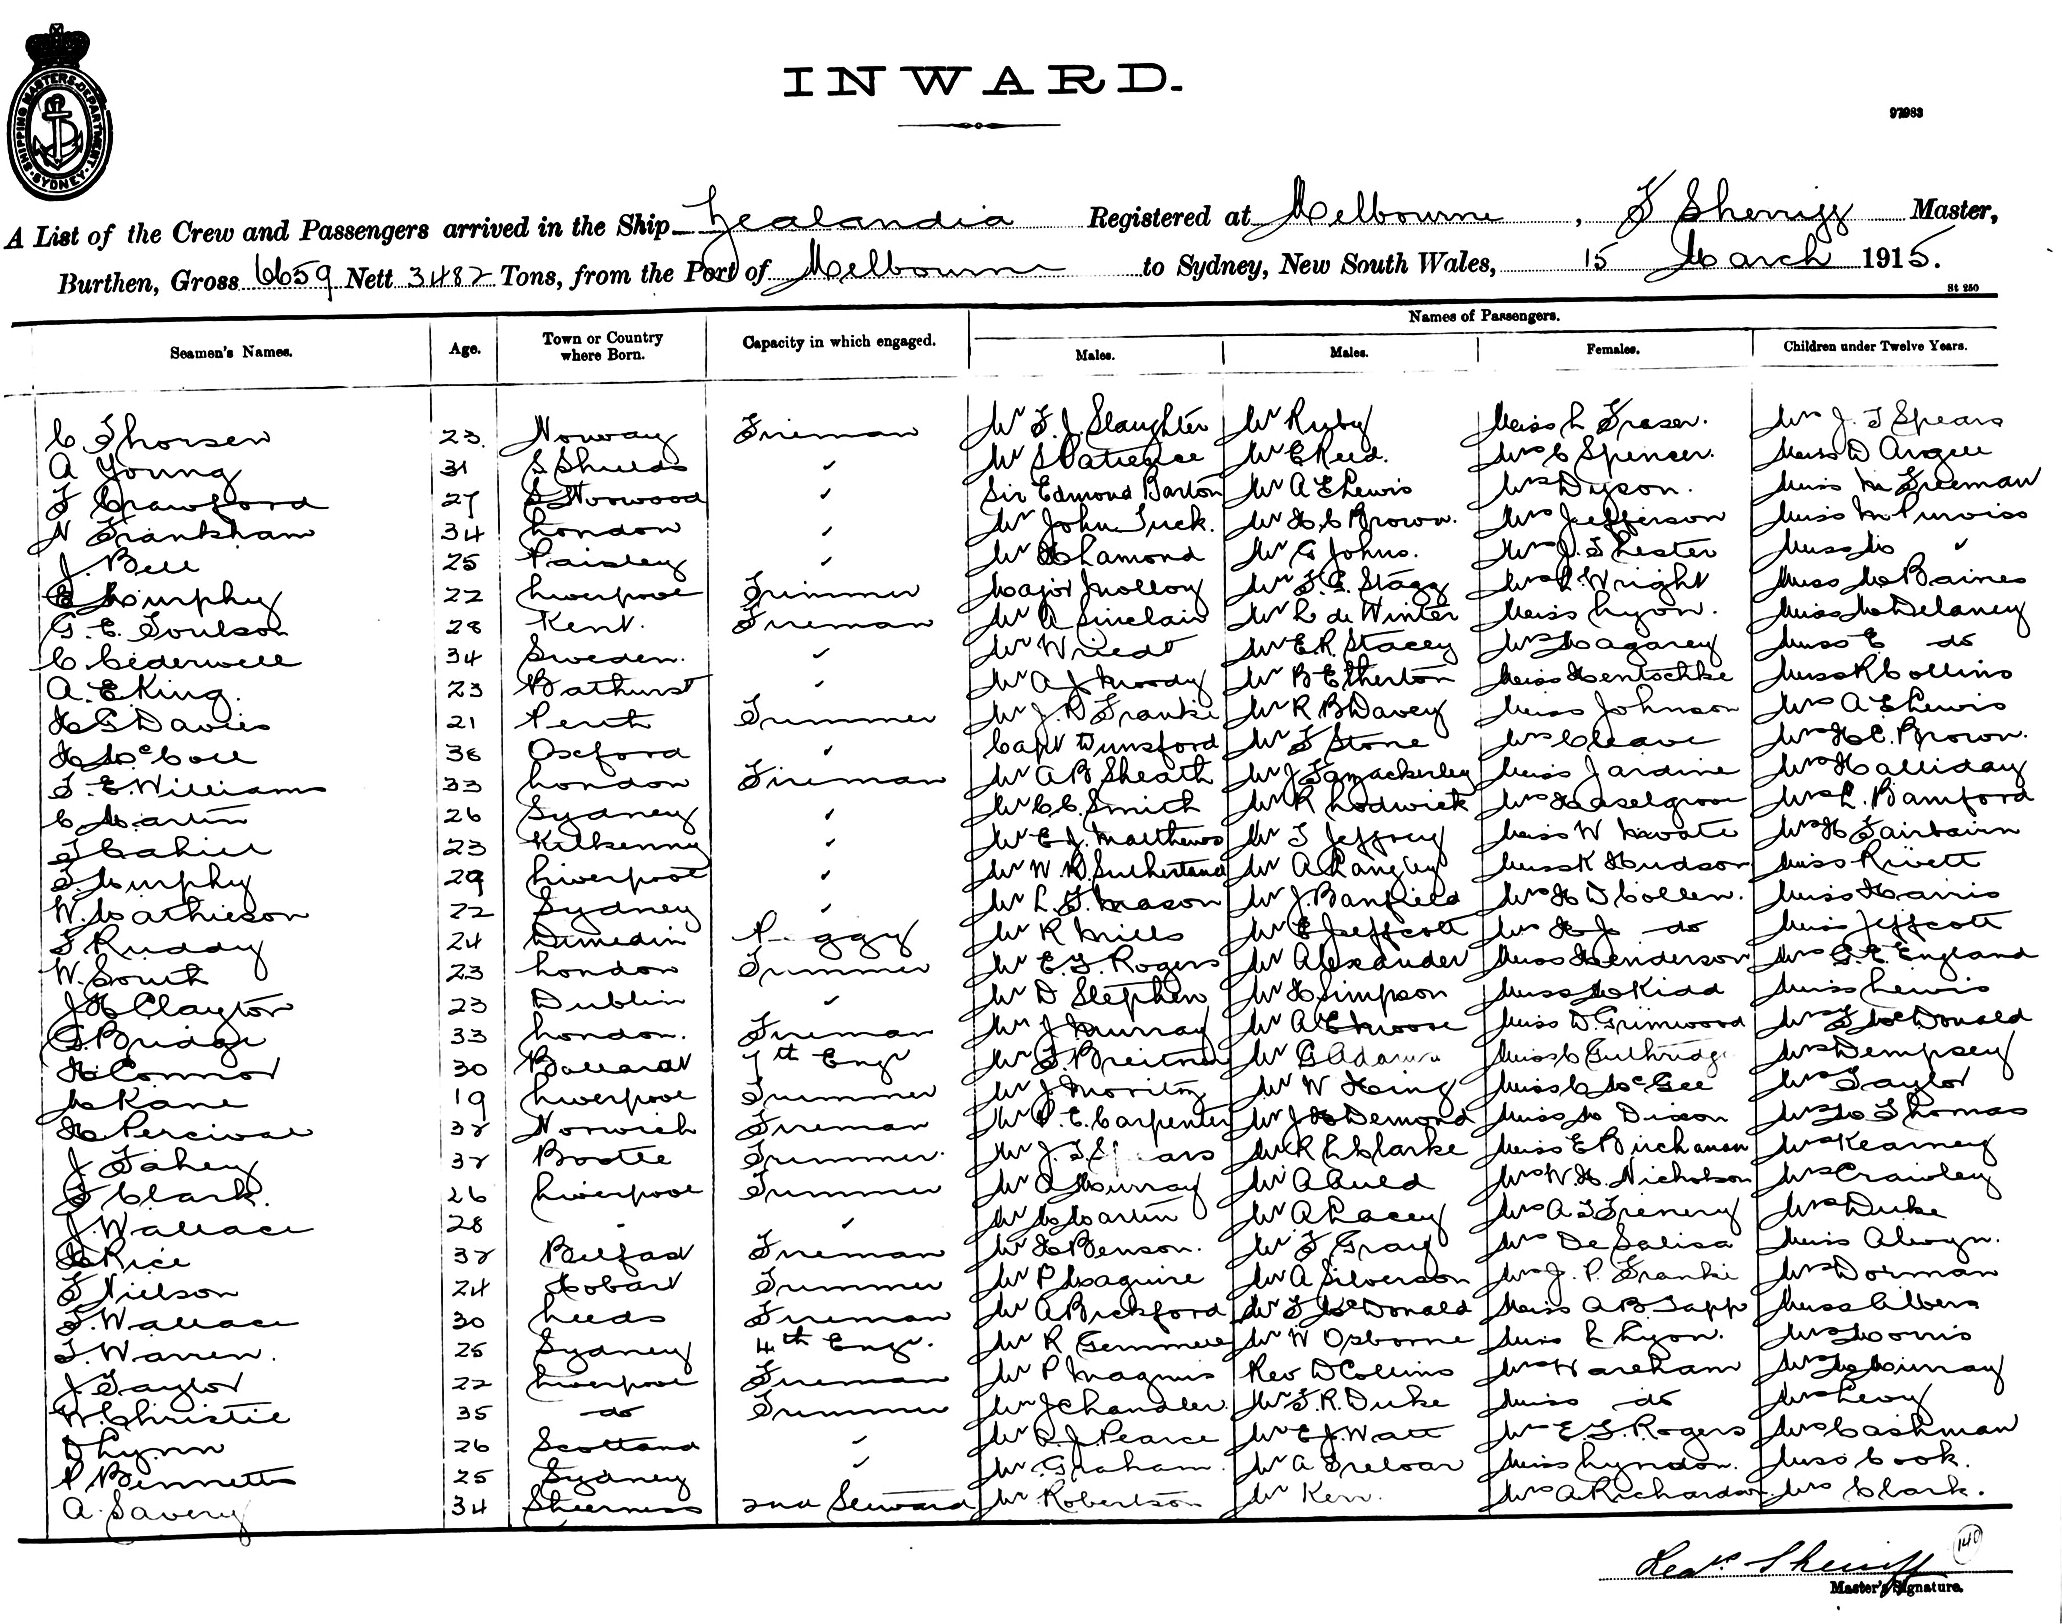 SHIPPING MASTERS DEPARTMENT. SYDNEY.
INWARD.
97983
A List of the Crew and Passengers arrived in the Ship Zealandia Registered at Melbourne, F Sherriff Master,
Burthen, Gross 6659 Nett 3482 Tons, from the Port of Melbourne to Sydney, New South Wales, 15 March 1915.
St 250
Names of Passengers.
Seamen's Names. Age. Town or Country where Born. Capacity in which engaged. Males. Males. Females. Children under Twelve Years.
C Thorsen 23. Norway Fireman Mr F. J. Slaughter Mr Ruby Miss L Fraser. Mrs J. T Spears
A Young 31 S Shields ✓ Mr S Patience Mr E Reed. Mrs C Spencer. Miss D Argue
F Crawford 27 S Norwood ✓ Sir Edmond Barton Mr A E Lewis Mrs Dyson. Miss M Freeman
N Franksham 34 London ✓ Mr John Tuck. Mr H C Brown. Mrs Jefferson Miss M Purviss
J. Bell 25 Paisley ✓ Mr H Lamond Mr G Johns. Mrs J. T Lester Miss M ✓
C Murphy 22 Liverpool Trimmer Major Molloy Mr F. G. Stagg Mrs L Wright Miss M Baines
G. E. Toulson 28 Kent. Fireman Mr A Sinclair Mr L de Winter Miss Lyon. Miss M Delaney
C Cederwell 34 Sweden. ✓ Mr Wriedt Mr E R Stacey Mrs Magarey Miss E do
A. E King. 23 Bathurst ✓ Mr A J Moody Mr B Etherton Miss Hentschke Miss R Collins
H G Davies 21 Perth Trimmer Mr J. P Franki Mr R B Davey Miss Johnson Mrs A E Lewis
H McColl 36 Oxford ✓ Capt Dunsford Mr F Stone Mrs Cleave Mrs H C. Brown.
T. E. Williams 33 London Fireman Mr A B Sheath Mr J Tamackerley Miss Jardine Mrs Halliday
C Martin 26 Sydney ✓ Mr C C. Smith Mr R Lodwick Mrs Haselgrove Mrs L. Bamford
T Cahill 23 Kilkenny ✓ Mr E J. Matthews Mr T Jeffrey Miss W Mvote Mrs H Fairbairn
T. Murphy 29 Liverpool ✓ Mr W. D. Sutherland Mr A Langley Miss K Hudson Miss Rivett
W. Mathieson 22 Sydney ✓ Mr L. F. Mason Mr J. Banfield Mrs H D Collen. Miss Harris
T Ruddy 24 Dunedin Peggy Mr R Mills Mr E Jeffcott Mrs H J do Miss Jeffcott
W. South 23 London Trimmer Mr E. T. Rogers Mr Alexander Miss Henderson Mrs G. E England
J H Clayton 23 Dublin ✓ Mr D Stephen Mr H Simpson Miss M Kidd Miss Lewis
G. Bridge 33 London. Fireman Mr J Murray Mr A E Moose Miss D Grimwood Mrs F McDonald
H Connor 30 Ballarat 7th Engr Mr F. Breitman Mr G Adams Miss C Guthridge Mrs Dempsey
M Kane 19 Liverpool Trimmer Mr J Moritz Mr W King Miss C McGee Mrs Taylor
H Percival 32 Norwich Fireman Mr P. E. Carpenter Mr J H Demond Miss M Dixon Mrs M Thomas
J Fahey 32 Bootle Trimmer. Mr J. T. Spears Mr R E Clarke Miss E Buchanan Mrs Kearney
T Clark. 26 Liverpool Trimmer Mr A Murray Mr A Auld Mrs W. H. Nicholson Mrs Crawley
J. Wallace 28 - ✓ Mr M Martin Mr A Lacey Mrs A T Trenery Mrs Duke
G Rice 32 Belfast Fireman Mr H Benson. Mr F Gray Mrs De Salisa Miss Alwyn.
F Nielson 24 Hobart Trimmer Mr P Maguire Mr A Silverson Mrs J. P. Franki Mrs Dorman
T. Wallace 30 Leeds Fireman Mr A Bickford Mr F McDonald Miss A B Tapp Miss Albers
T. Warren. 25 Sydney 4th Engr. Mr R Gemmell Mr W Osborne Miss L Lyon. Mrs Morris
J Taylor 22 Liverpool Fireman Mr P Magnus Rev D Collins Mrs Wareham Mrs M Murray
W. Christie 35 do Trimmer Mr J Chandler. Mr F. R. Duke Miss do Mrs Levy
D Lynn 26 Scotland ✓ Mr A. J. Pearce Mr E J. Watt Mrs E. T. Rogers Mrs Cashman
P Bennetts 25 Sydney ✓ Mr Graham. Mr A Treloar Miss Lyndon. Miss Cook.
A. Savery 34 Sheerness 2nd Steward Mr Robertson Mr Kerr. Mrs A Richardson Mrs Clark.
140
Sherriff
Master's Signature.